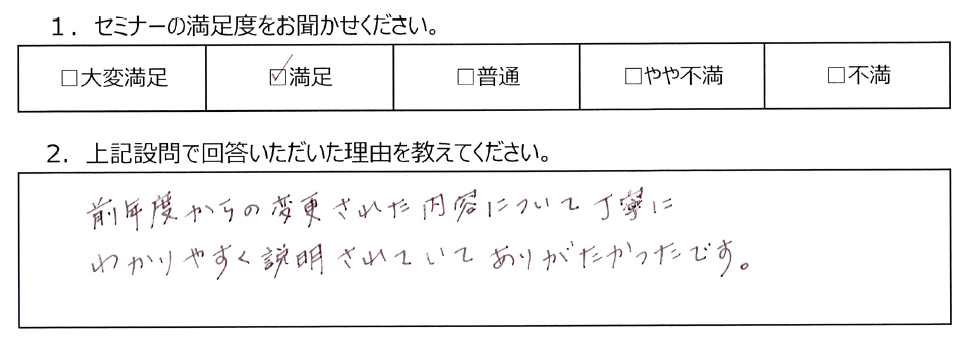 1．セミナーの満足度をお聞かせください。
□大変満足 ☑満足 □普通 □やや不満 □不満
2．上記設問で回答いただいた理由を教えてください。
前年度からの変更された内容について丁寧に
わかりやすく説明されていてありがたかったです。